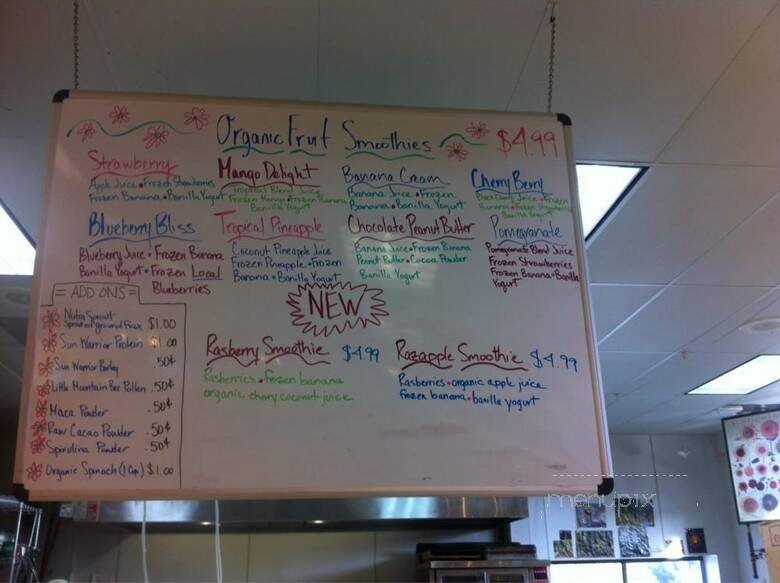 Organic Fruit Smoothies $4.99
Strawberry
Apple Juice • Frozen Strawberries
Frozen Banana • Banilla Yogurt
Mango Delight
Tropical Blend Juice
Frozen Mango • Frozen Banana
Banilla Yogurt
Banana Cream
Banana Juice • Frozen
Banana • Banilla Yogurt
Cherry Berry
Black Cherry Juice • Frozen
Banana • Frozen Strawberries
Banilla Yogurt
Blueberry Bliss
Blueberry Juice • Frozen Banana
Banilla Yogurt • Frozen Local
Blueberries
Tropical Pineapple
Coconut Pineapple Juice
Frozen Pineapple • Frozen
Banana • Banilla Yogurt
Chocolate Peanut Butter
Banana Juice • Frozen Banana
Peanut Butter • Cocoa Powder
Banilla Yogurt
Pomegranate
Pomegranate Blend Juice
Frozen Strawberries
Frozen Banana • Banilla
Yogurt
= ADD ONS =
Nutra Sprout
Sprouted ground Flax $1.00
Sun Warrior Protein $1.00
Sun Warrior Barley .50¢
Little Mountain Bee Pollen .50¢
Maca Powder .50¢
Raw Cacao Powder .50¢
Spirulina Powder .50¢
Organic Spinach (1 Cup) $1.00
NEW
Rasberry Smoothie $4.99
Rasberries • frozen banana
organic cherry coconut juice
Razapple Smoothie $4.99
Rasberries • organic apple juice
frozen banana • banilla yogurt
menupix